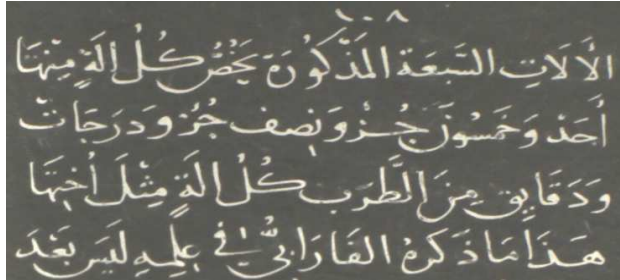 ١٠٨
الألَاتِ السَّبعَة المَذّكُورَة يَخُصُّ كُلُ الَةٍ مِنْهَا
أَحَدْ وَخَمسُونَ جُزْ وَنِصف جُزْ وَدَرَجَات
وَدَقَايِق مِنَ الطَّرَب كُلُ الَةٍ مِثْلَ اُختِهَا
هَذَا مَاذَكَرهُ الفَارَابيُّ في عِلمِهِ لَيسَ بَعْدَ